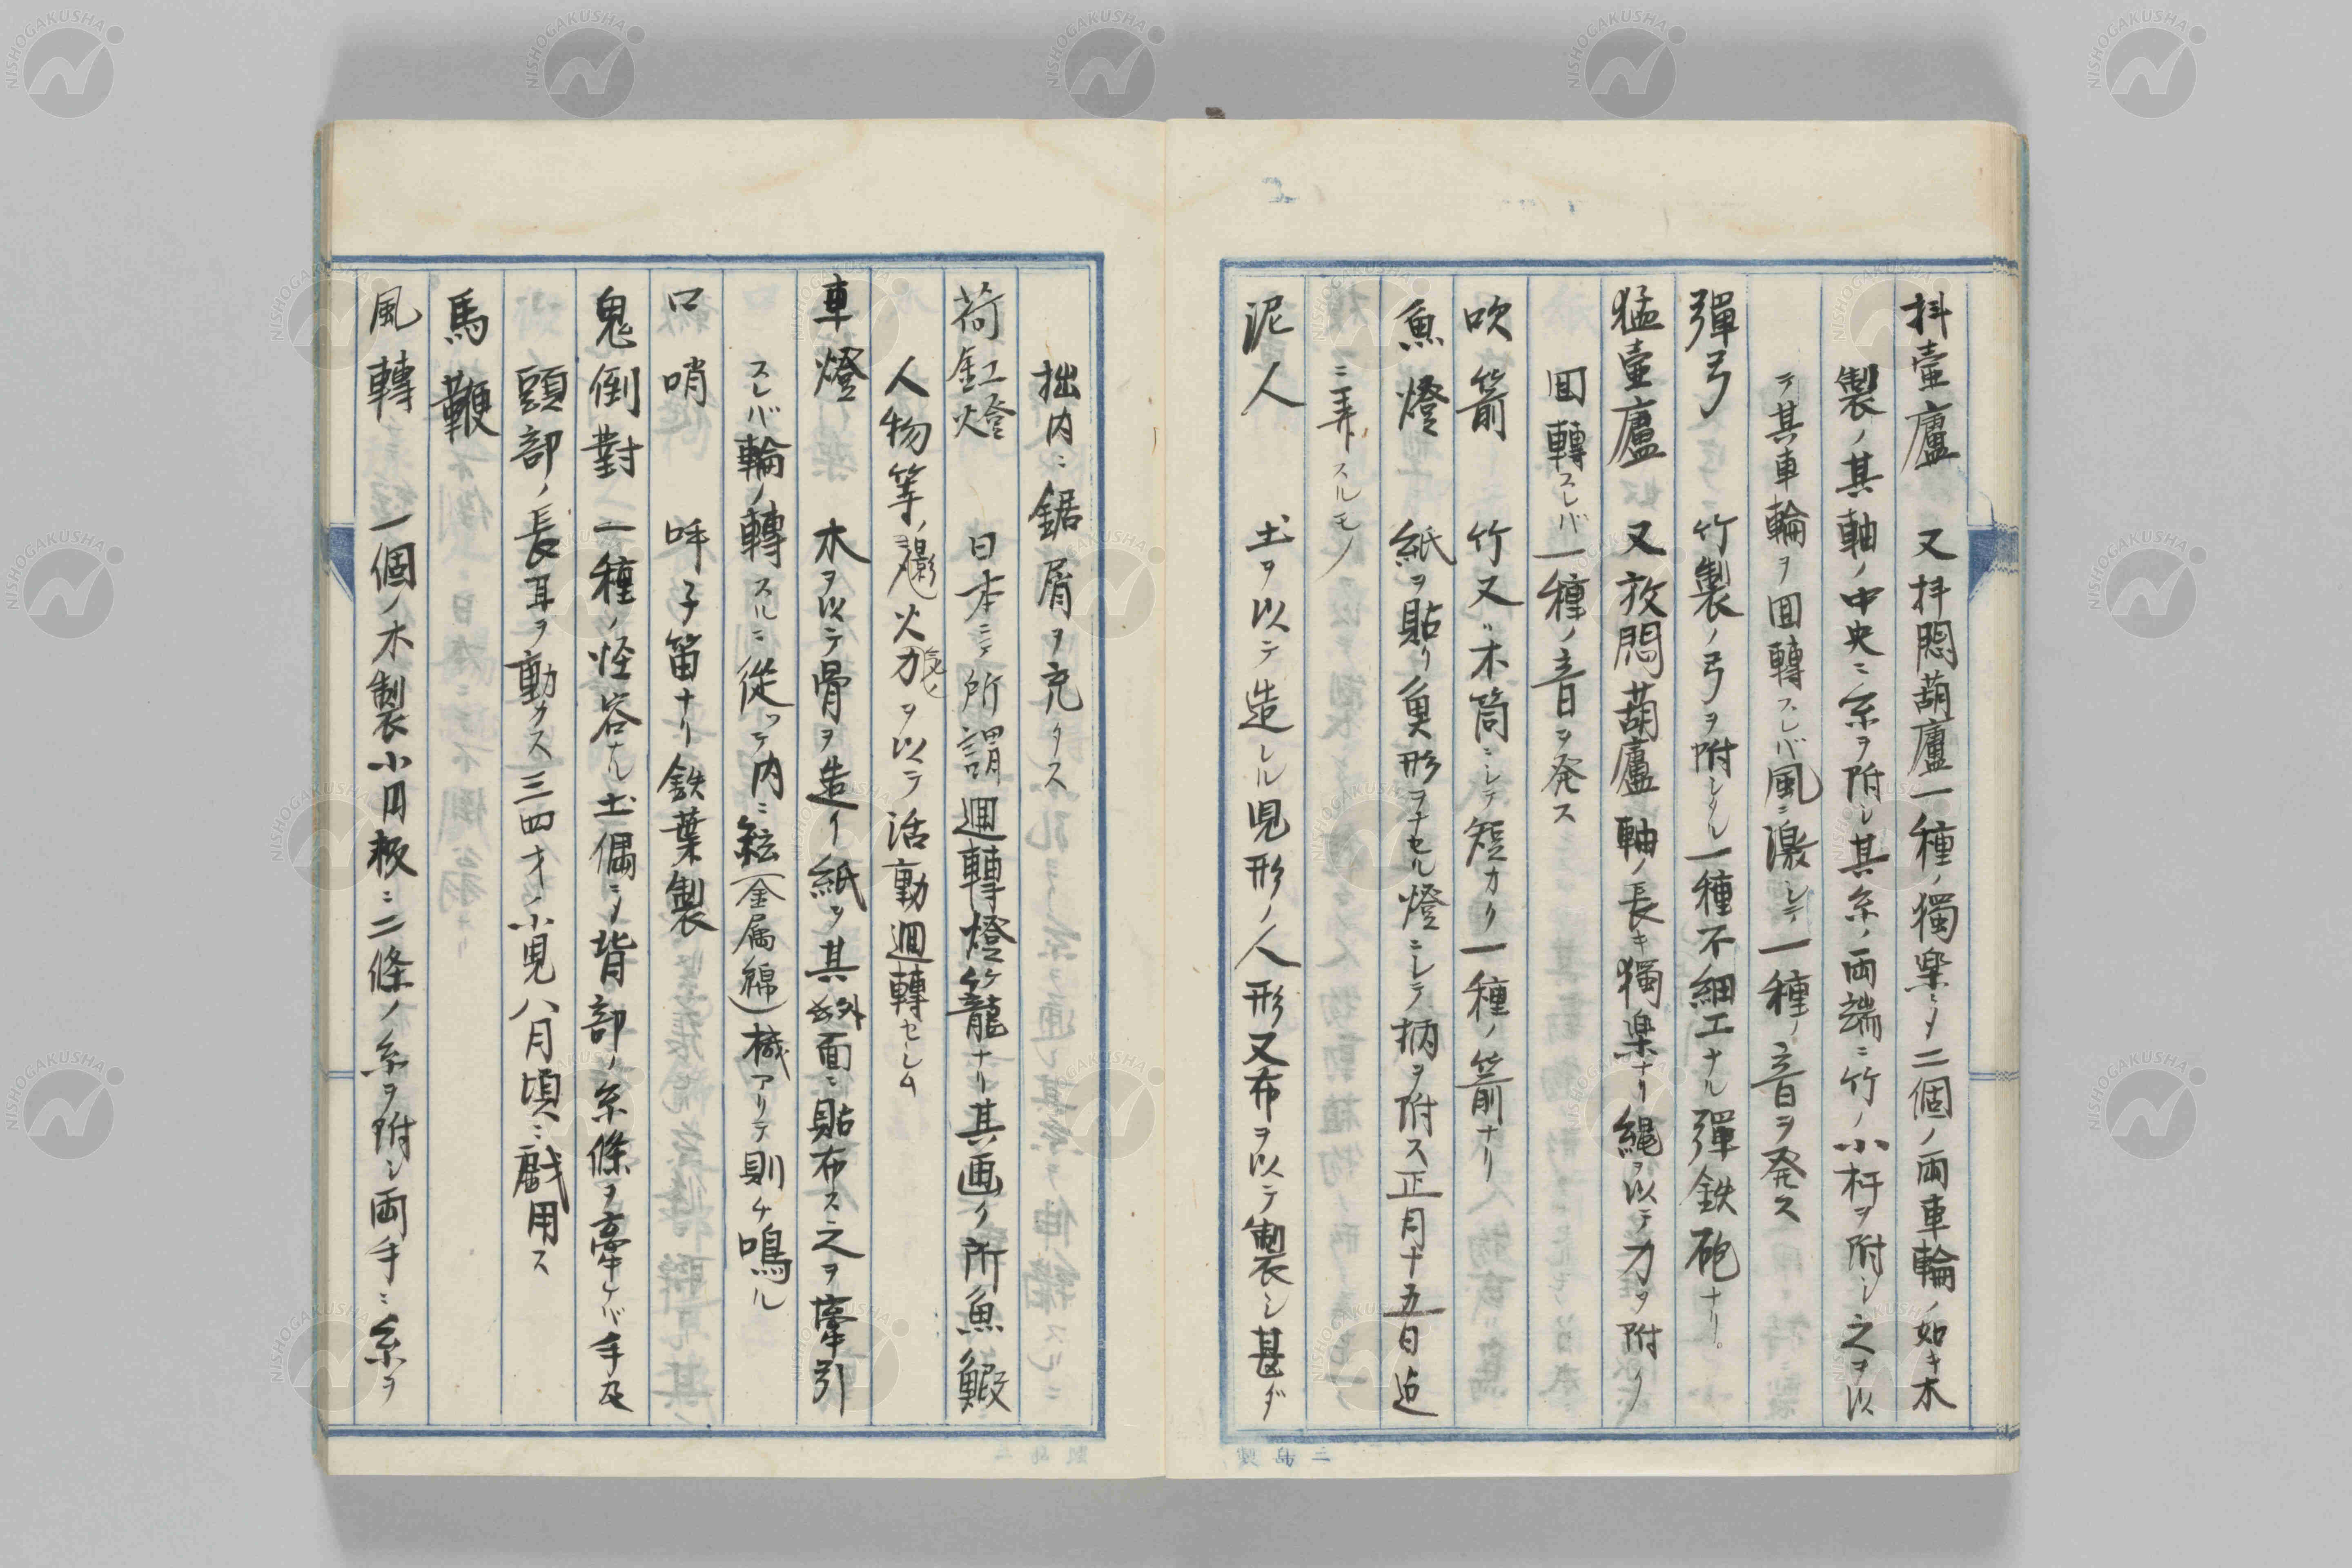 抖壷廬 又抖悶葫廬一種ノ獨楽ニメ二個ノ両車輪ノ如キ木
製ノ其軸ノ中央ニ糸ヲ附シ其糸ノ両端ニ竹ノ小杆ヲ附シ之ヲ以
テ其車輪ヲ回轉スレバ風ニ激シテ一種ノ音ヲ発ス
彈弓 竹製ノ弓ヲ附シタル一種不細工ナル彈鉄砲ナリ。
猛壷廬 又放悶葫廬軸ノ長キ獨楽ナリ縄ヲ以テ力ヲ附ケ
回轉スレバ一種ノ音ヲ発ス
吹箭 竹又ハ木筒ニシテ短カク一種ノ箭ナリ
魚燈 紙ヲ貼リ魚形ヲナセル燈ニシテ柄ヲ附ス正月十五日迠
ニ弄スルモノ
泥人 土ヲ以テ造レル児形ノ人形又布ヲ以テ製シ甚ダ
拙内ニ鋸屑ヲ充タス
荷缸燈 日本ニテ所謂廻轉燈籠ナリ其画ク所魚鰕
人物等ノ影ヲ火力ヲ以テ活動廻轉セシム
車燈 木ヲ以テ骨ヲ造リ紙ヲ其外面ニ貼布ス之ヲ牽引
スレバ輪ノ轉スルニ從ッテ内ニ絃(金属線)機アリテ則ケ鳴ル
口哨 呼子笛ナリ鉄葉製
鬼倒對 一種ノ怪容ナル土偶ニメ背部ノ糸條ヲ牽ケバ手及
頭部ノ長耳ヲ動カス三四才ノ小児八月頃ニ戯用ス
馬鞭
風轉 一個ノ木製小円板ニ二條ノ糸ヲ附シ両手ニ糸ヲ
NISHOGAKUSHA